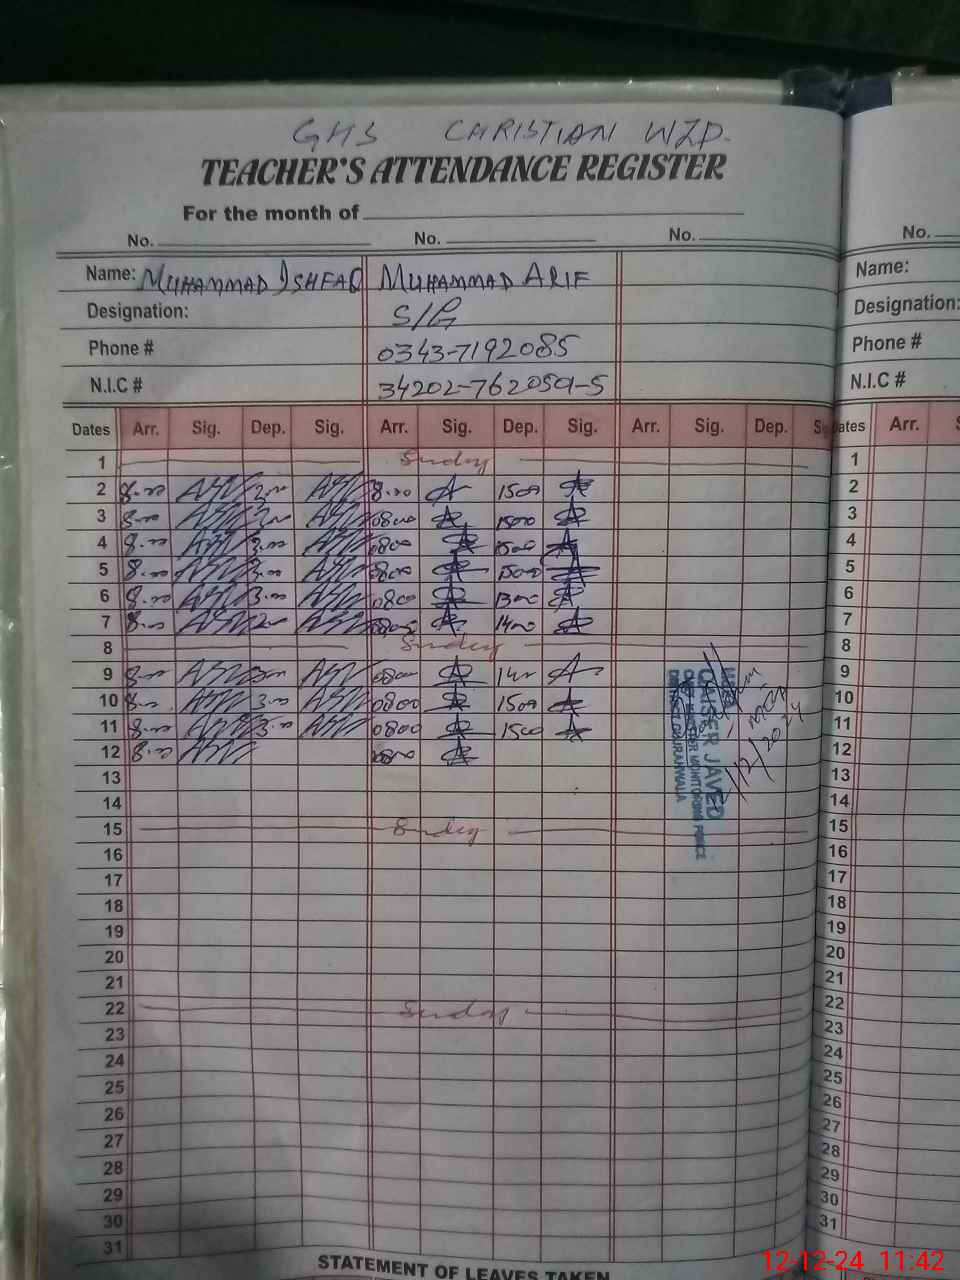 GHS CHRISTIAN WZD.
TEACHER'S ATTENDANCE REGISTER
For the month of
No. No. No. No.
Name: MUHAMMAD ISHFAQ MUHAMMAD ARIF Name:
Designation: Designation:
Phone # 0343-7192085 Phone #
N.I.C # N.I.C #
Dates Arr. Sig. Dep. Sig. Arr. Sig. Dep. Sig. Arr. Sig. Dep. Dates Arr.
1 Sunday 1
2 8.00 8.00 1500 2
3 8.00 0800 1500 3
4 8.00 3.00 0800 1500 4
5 8.00 3.00 0800 1500 5
6 8.00 3.00 0800 1300 6
7 8.00 1400 7
8 Sunday 8
9 8.00 0800 9
10 8.00 3.00 0800 1500 10
11 8.00 3.00 0800 1500 11
12 8.00 0800 12
13 13
14 14
15 Sunday 15
16 16
17 17
18 18
19 19
20 20
21 21
22 Sunday 22
23 23
24 24
25 25
26 26
27 27
28 28
29 29
30 30
31 31
QAISER JAVED
DISTRICT GUJRANWALA
STATEMENT OF LEAVES TAKEN
12-12-24 11:42